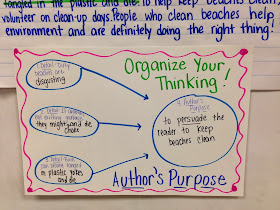 tangled in the plastic and die. To help keep beaches clean,
volunteer on clean-up days. People who clean beaches help
environment and are definitely doing the right thing!
Organize Your
Thinking!
1. Detail: Dirty
beaches are
disgusting
2. Detail:
they might and die
choke
3. Detail:
in plastic yokes and die
4. Author's
Purpose
to persuade the
reader to keep
beaches clean
Author's Purpose